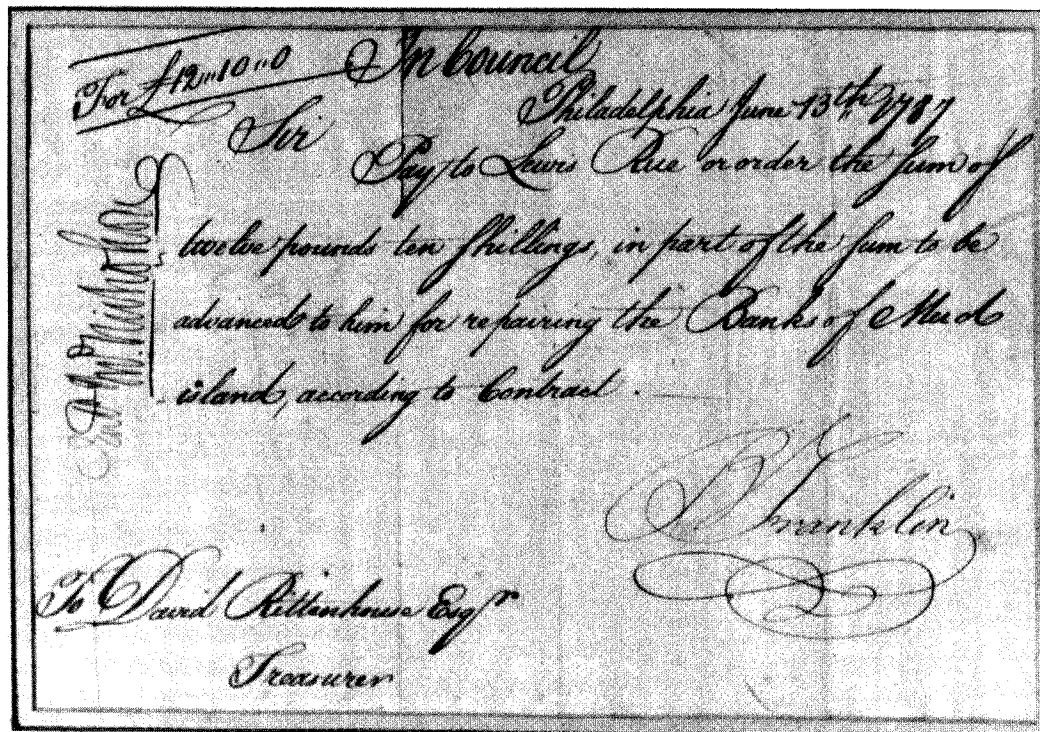 For £12"10"0
In Council
Philadelphia June 13th 1787
Sir
Pay to Lewis Rue or order the sum of
twelve pounds ten shillings, in part of the sum to be
advanced to him for repairing the Banks of Mud
island, according to Contract.
B Franklin
To David Rittenhouse Esqr
Treasurer
Nicholson